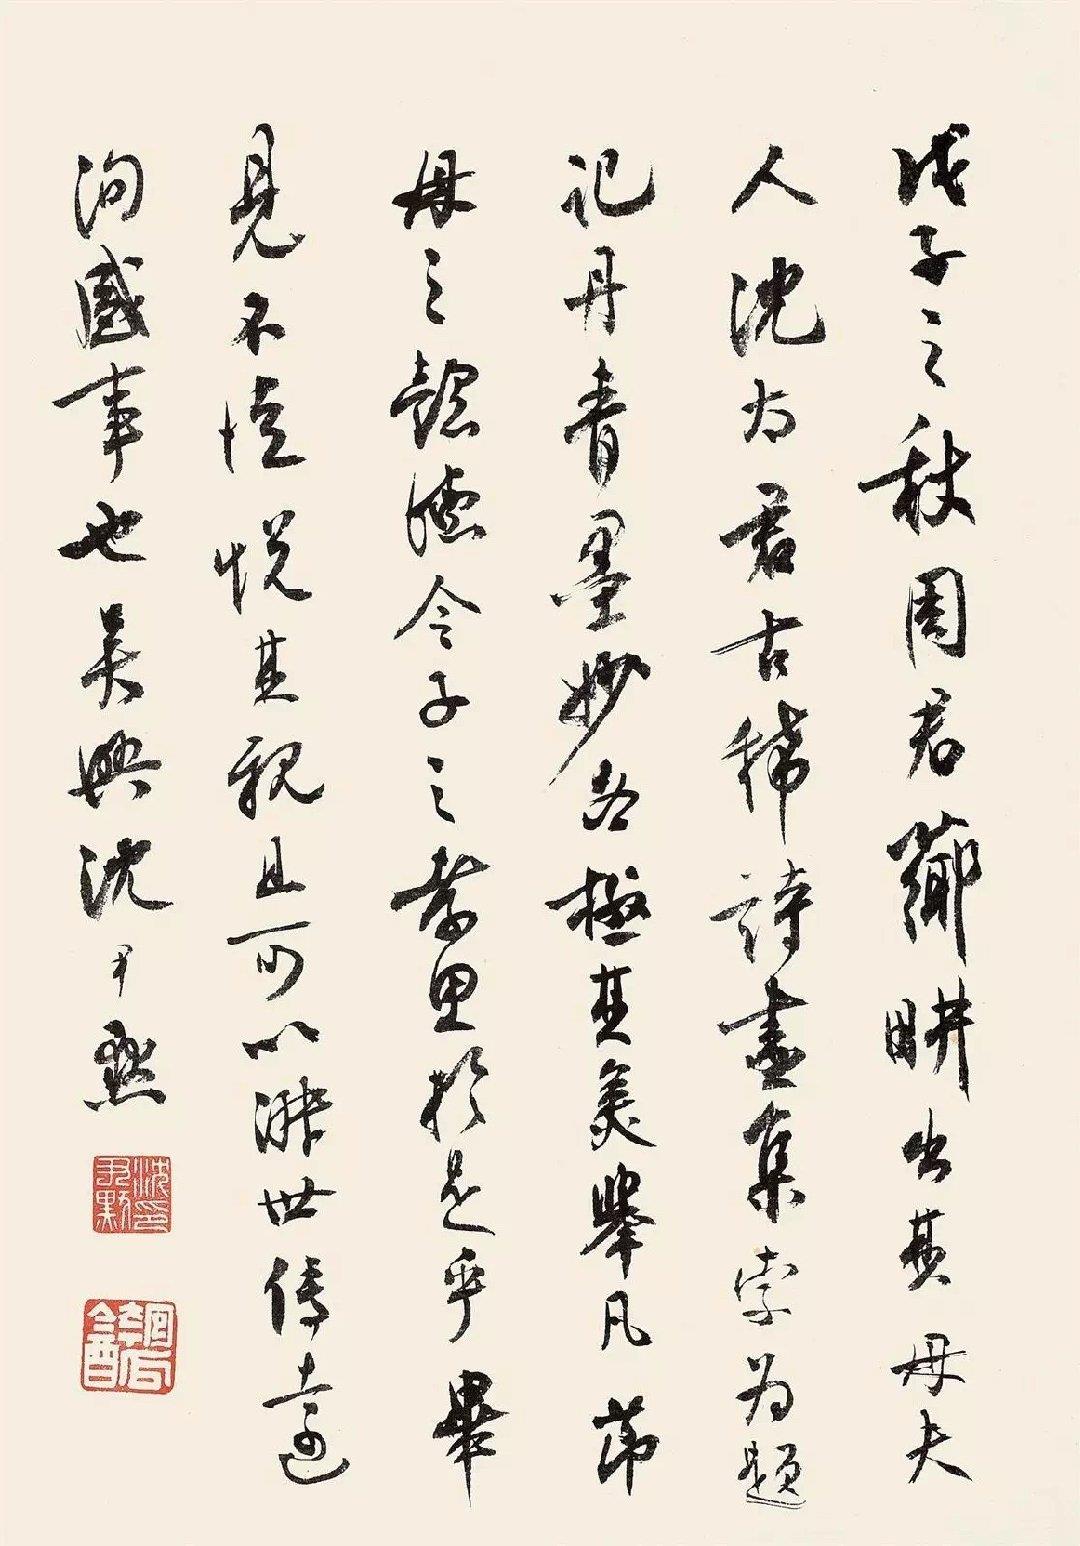 戊子之秋周君薌畊出其母夫
人沈太君古稀詩畫集索为題
記丹青墨妙各極其美舉凡節
母之懿德令子之孝思於是乎畢
見不徒悅其親且可以淑世傳遠
洵盛事也吴興沈尹默
沈尹默印